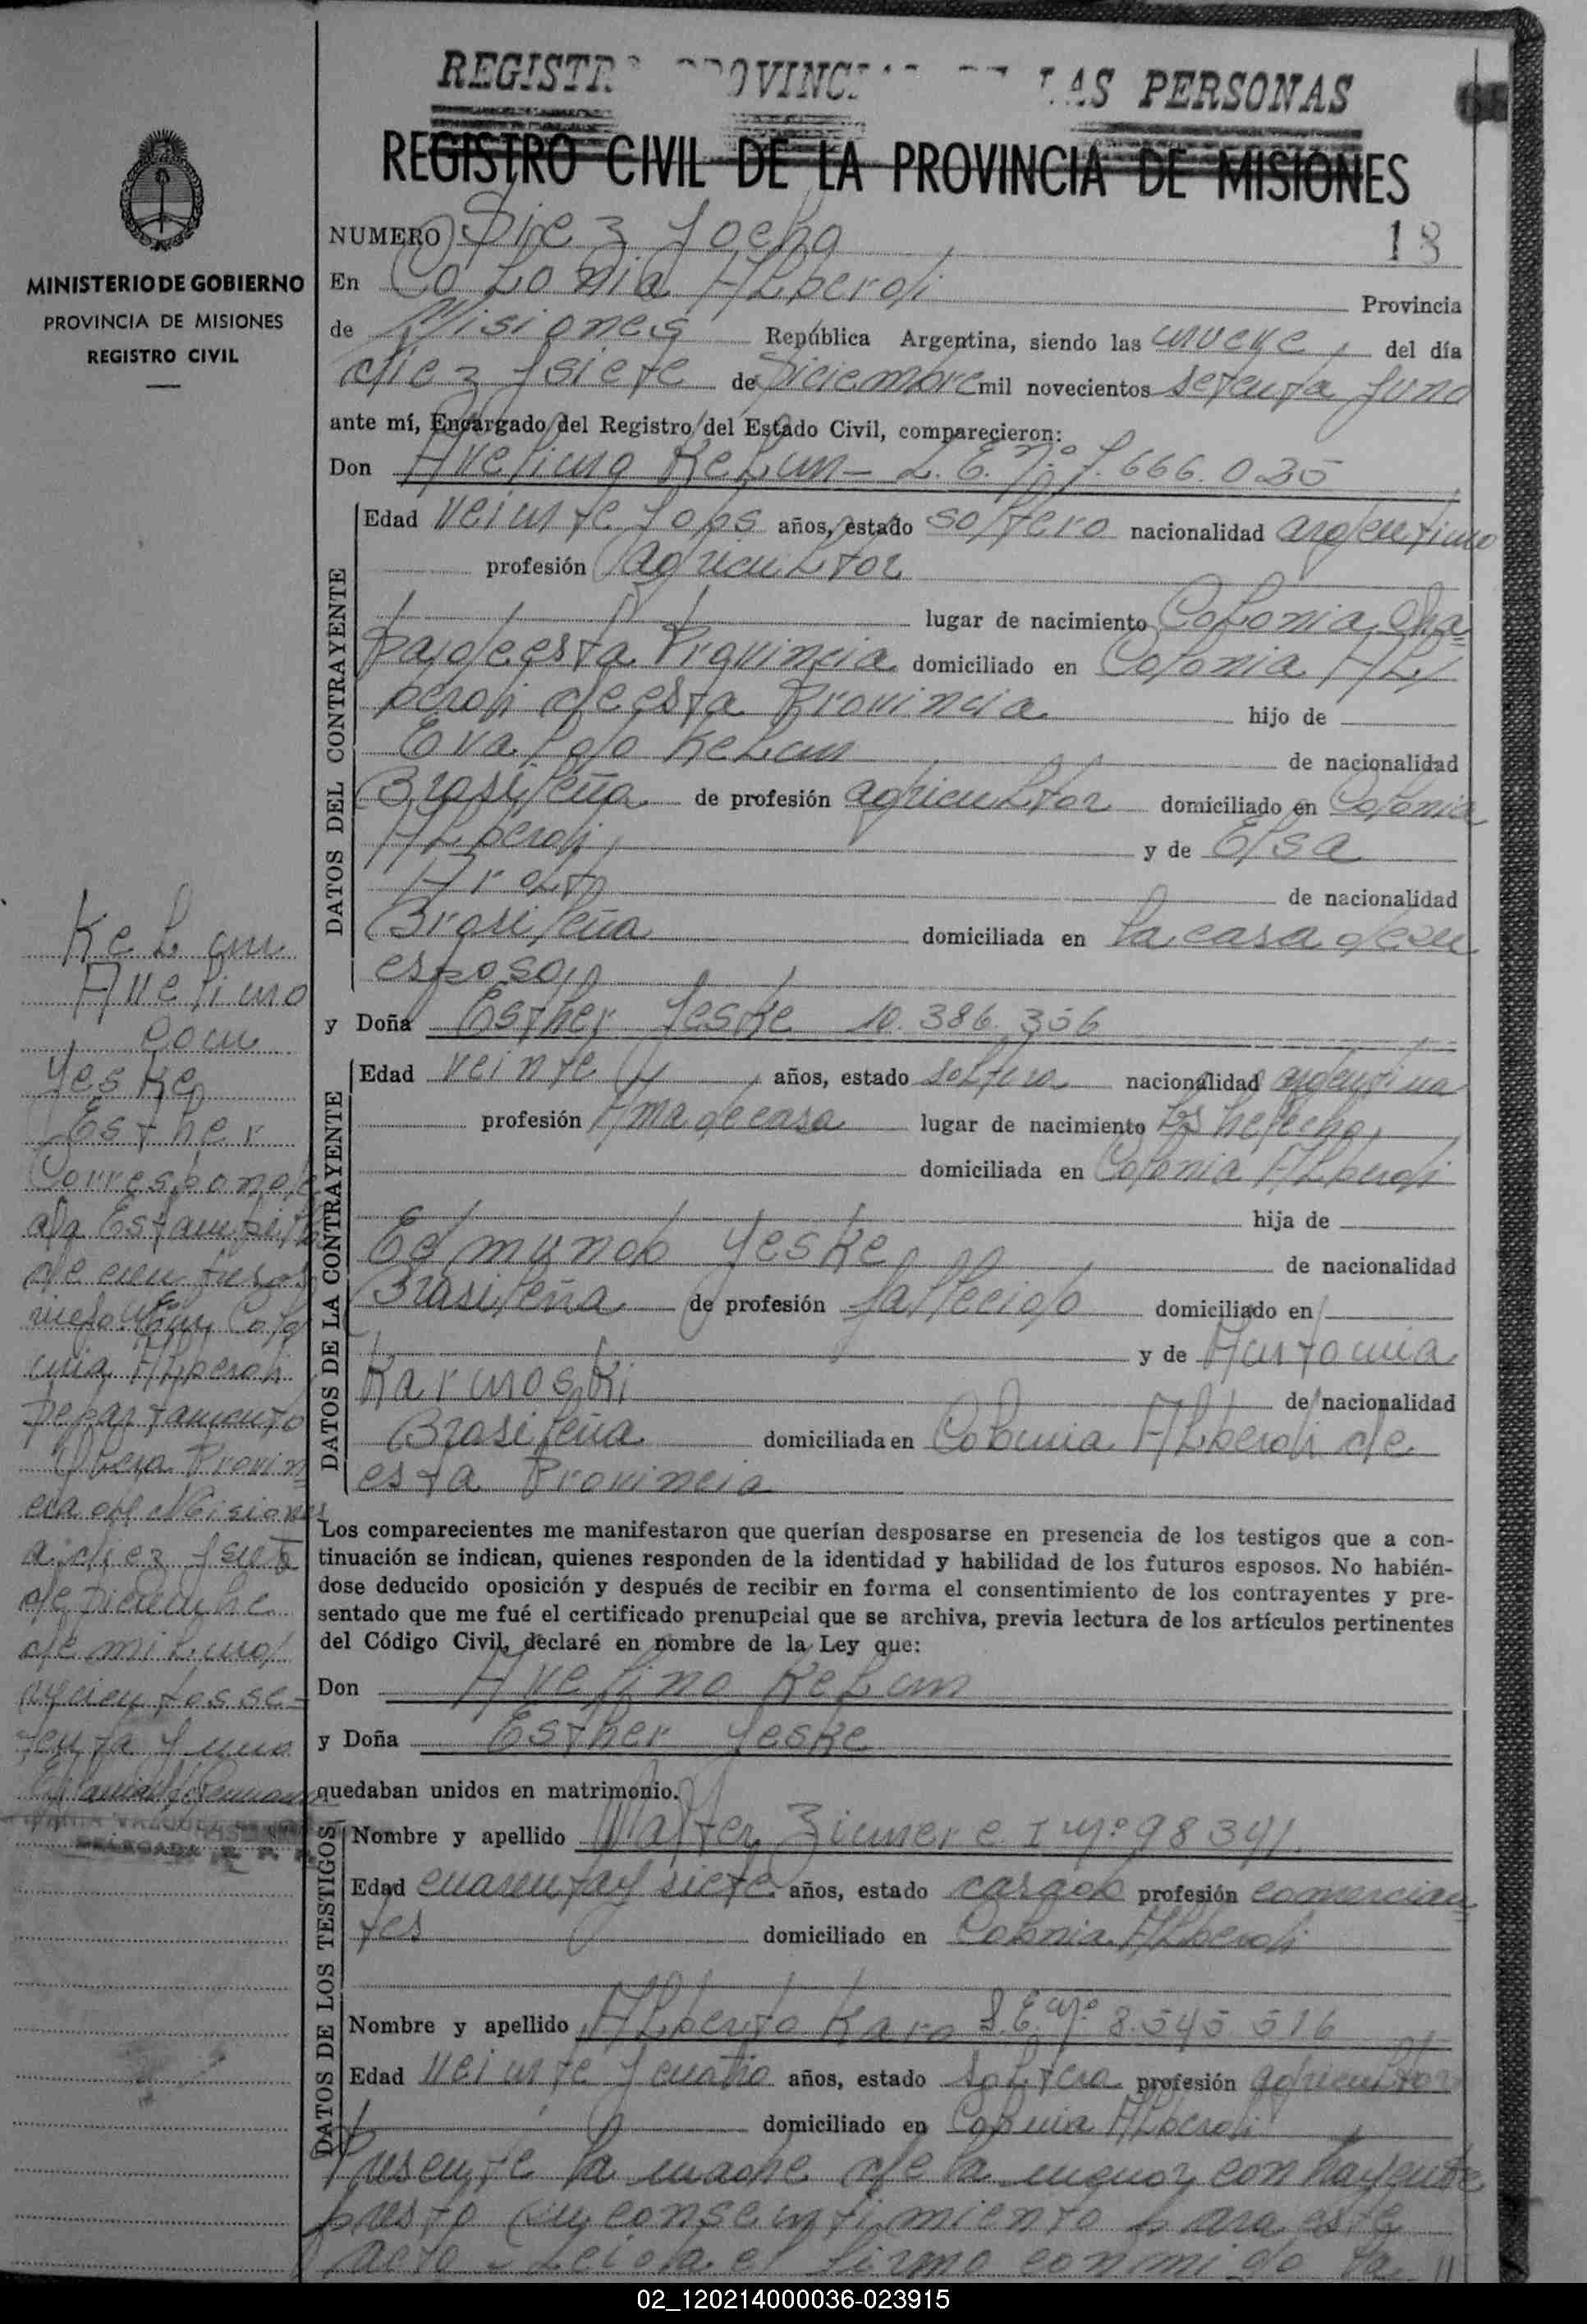 REGISTRO PROVINCIAL DE LAS PERSONAS
REGISTRO CIVIL DE LA PROVINCIA DE MISIONES
MINISTERIO DE GOBIERNO
PROVINCIA DE MISIONES
REGISTRO CIVIL
NUMERO Diez y ocho 18
En Colonia Alberdi Provincia
de Misiones República Argentina, siendo las nueve del día
diez y siete de Diciembre mil novecientos setenta y uno
ante mí, Encargado del Registro del Estado Civil, comparecieron:
Don Avelino Kelm - L. E. Nº 7.666.035
DATOS DEL CONTRAYENTE
Edad veinte y dos años, estado soltero nacionalidad argentino
profesión agricultor
lugar de nacimiento Colonia Cha=
pa, de esta Provincia domiciliado en Colonia Al/
berdi de esta Provincia hijo de
Evaldo Kelm de nacionalidad
Brasileña de profesión agricultor domiciliado en Colonia
Alberdi y de Elsa
de nacionalidad
Brasileña domiciliada en la casa de su
esposo
y Doña Esther Yeske 10.386.356
DATOS DE LA CONTRAYENTE
Edad veinte años, estado soltera nacionalidad argentina
profesión Ama de casa lugar de nacimiento Los helechos
domiciliada en Colonia Alberdi
hija de
Edmundo Yeske de nacionalidad
Brasileña de profesión fallecido domiciliado en
y de Antonia
Karnoski de nacionalidad
Brasileña domiciliada en Colonia Alberdi de
esta Provincia
Los comparecientes me manifestaron que querían desposarse en presencia de los testigos que a con-
tinuación se indican, quienes responden de la identidad y habilidad de los futuros esposos. No habién-
dose deducido oposición y después de recibir en forma el consentimiento de los contrayentes y pre-
sentado que me fué el certificado prenupcial que se archiva, previa lectura de los artículos pertinentes
del Código Civil, declaré en nombre de la Ley que:
Don Avelino Kelm
y Doña Esther Yeske
quedaban unidos en matrimonio.
DATOS DE LOS TESTIGOS
Nombre y apellido Walter Ziemer C I Nº 98341
Edad cuarenta y siete años, estado casado profesión comercian=
tes domiciliado en Colonia Alberdi
Nombre y apellido Alberto Karo L.E. Nº 8.545.516
Edad veinte y cuatro años, estado soltero profesión agricultor
domiciliado en Colonia Alberdi
Presente la madre de la menor contrayente
presto su consentimiento para este
acto - Leída el firmo conmigo la
Kelm
Avelino
con
Yeske
Esther
Corresponde
a la Estampilla
de cien pesos
Colo
nia Alberdi
Departamento
Obera Provin
cia de Misiones
a diez y siete
de Diciembre
de mil no/
vecientos se-
tenta y uno
DELEGADA
02_120214000036-023915